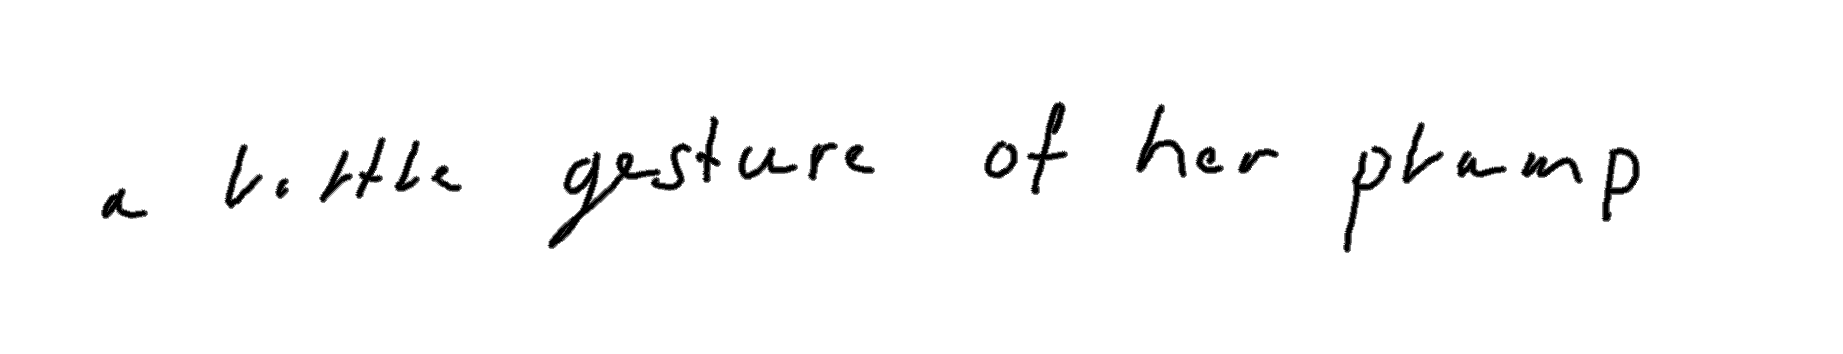 a little gesture of her plump